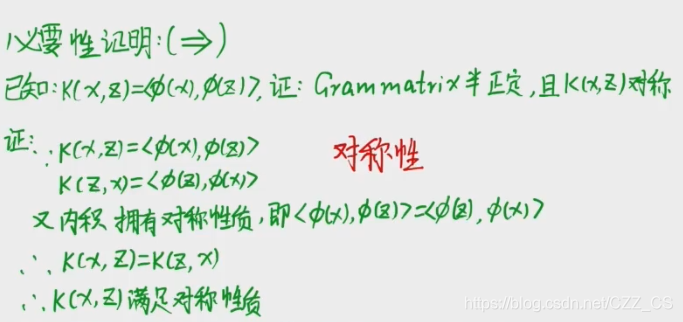 1) 必要性证明:(⇒)
已知:K(x,z)=<φ(x),φ(z)>,证: Grammatrix半正定,且K(x,z)对称
证:∵K(x,z)=<φ(x),φ(z)>
对称性
K(z,x)=<φ(z),φ(x)>
又内积拥有对称性质,即<φ(x),φ(z)>=<φ(z),φ(x)>
∴K(x,z)=K(z,x)
∴K(x,z)满足对称性质
https://blog.csdn.net/CZZ_CS